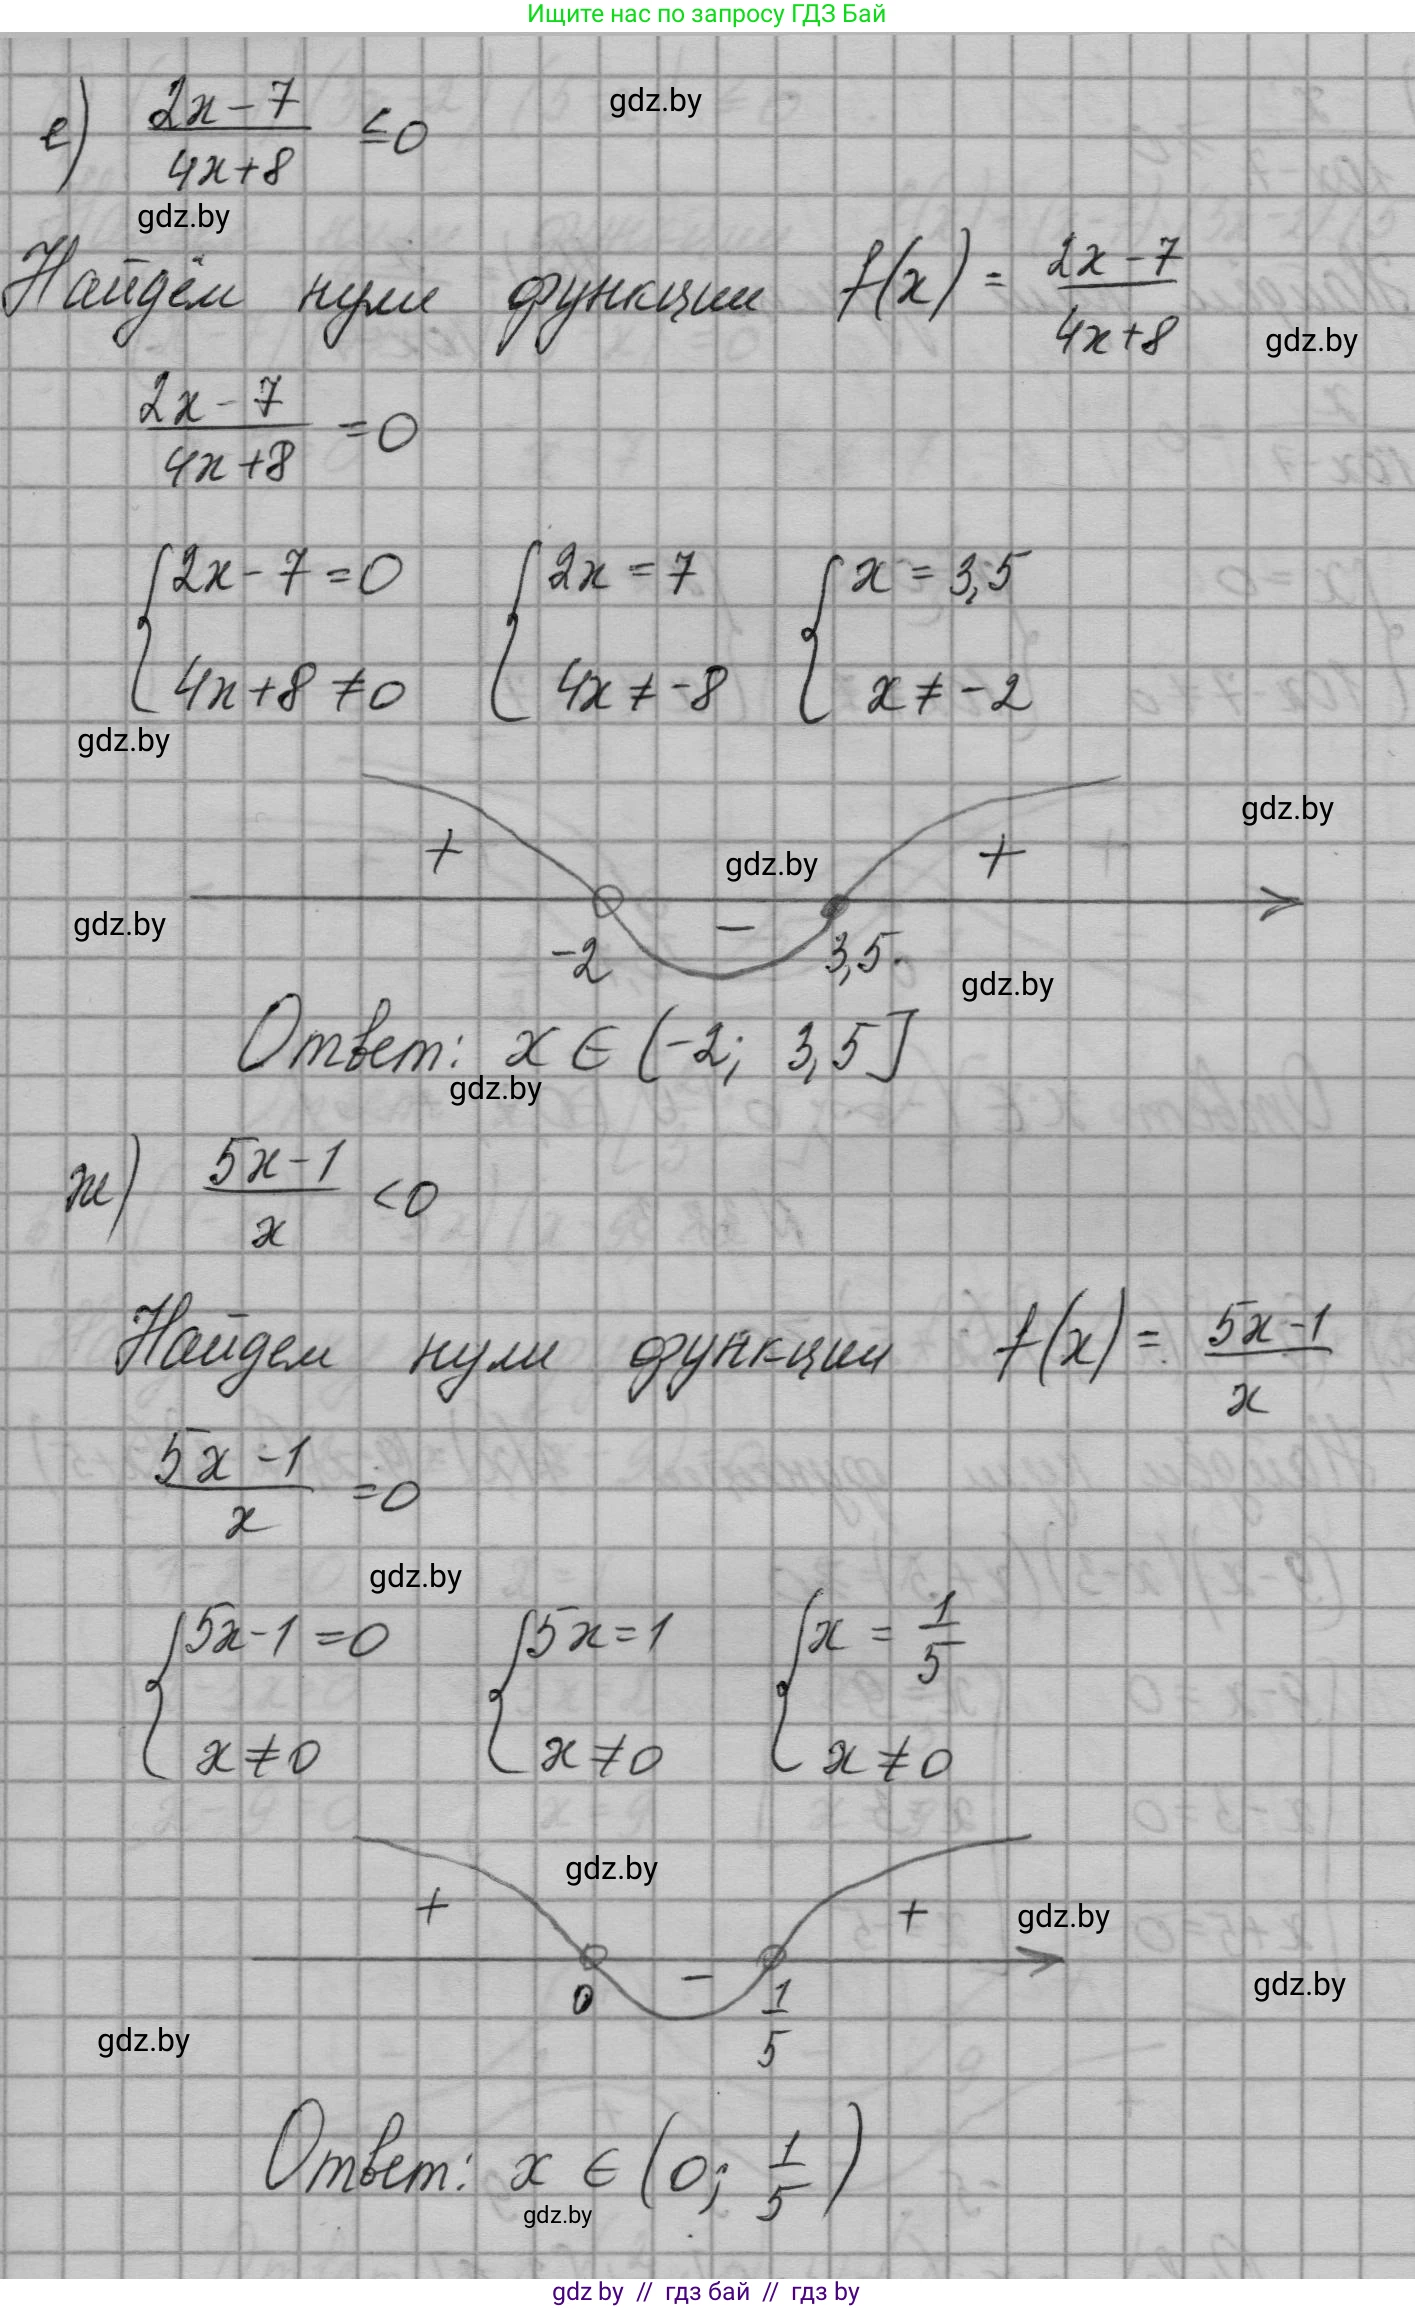 Ищите нас по запросу ГДЗ Бай
е) (2x-7)/(4x+8) ≤ 0
gdz.by
gdz.by
Найдём нули функции f(x) = (2x-7)/(4x+8)
gdz.by
(2x-7)/(4x+8) = 0
{2x-7=0 {2x=7 {x=3,5
4x+8≠0 4x≠-8 x≠-2
gdz.by
gdz.by
+ gdz.by +
gdz.by
-
-2 3,5.
gdz.by
Ответ: x ∈ (-2; 3,5]
gdz.by
ж) (5x-1)/x < 0
Найдем нули функции f(x) = (5x-1)/x
(5x-1)/x = 0
gdz.by
{5x-1=0 {5x=1 {x=1/5
x≠0 x≠0 x≠0
gdz.by
+ + gdz.by
-
gdz.by
0 1/5
gdz.by
Ответ: x ∈ (0; 1/5)
gdz.by
gdz by // гдз бай // гдз by